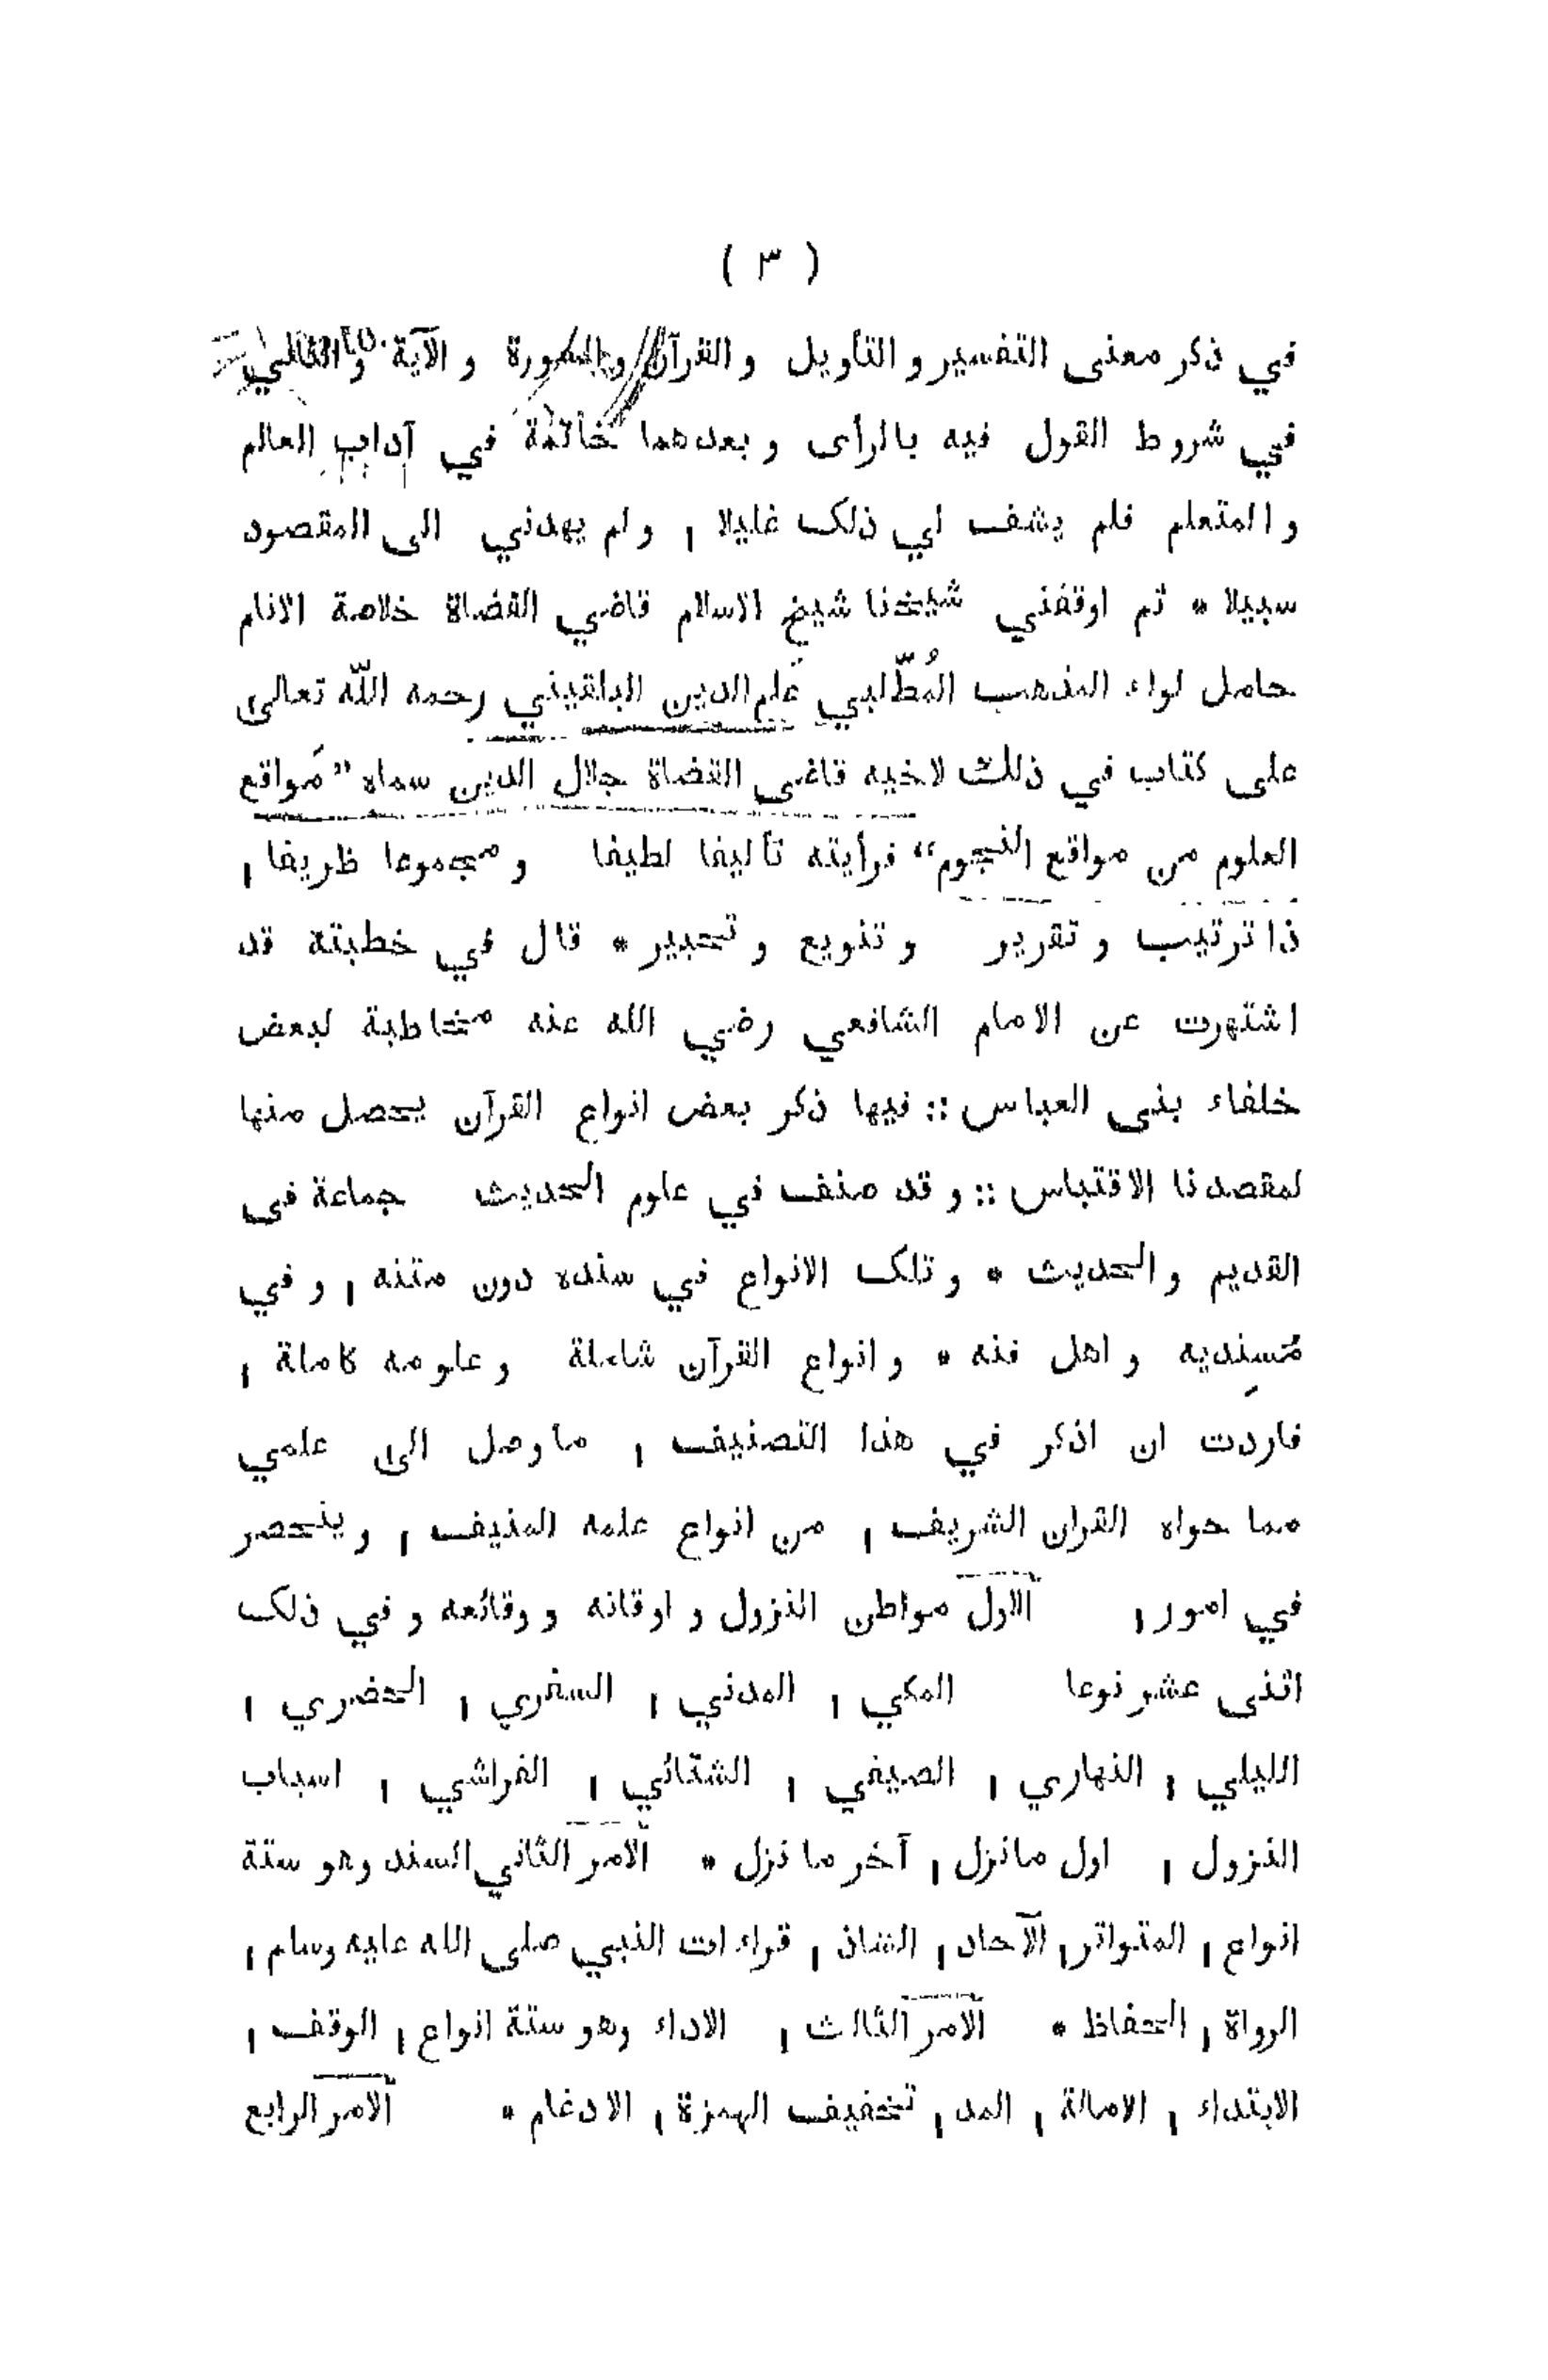 ( ٣ )
في ذكر معنى التفسير و التأويل والقرآن والسورة و الآية و الثاني
في شروط القول فيه بالرأى و بعدهما خاتمة في آداب العالم
و المتعلم فلم يشف لي ذلك غليلا ، و لم يهدني الى المقصود
سبيلا * ثم اوقفني شيخنا شيخ الاسلام قاضي القضاة خلاصة الانام
حامل لواء المذهب المُطَّلبي عَلم الدين البلقيني رحمه اللّه تعالى
على كتاب في ذلك لاخيه قاضى القضاة جلال الدين سماه " مَواقع
العلوم من مواقع النجوم “ فرأيته تأليفا لطيفا و مجموعا ظريفا ،
ذا ترتيب و تقرير و تنويع و تحبير * قال في خطبته قد
اشتهرت عن الامام الشافعي رضي الله عنه مخاطبة لبعض
خلفاء بنى العباس :: فيها ذكر بعض انواع القرآن يحصل منها
لمقصدنا الاقتباس :: و قد صنف في علوم الحديث جماعة فى
القديم و الحديث * و تلك الانواع في سنده دون متنه ، و في
مُسنِديه و اهل فنه * و انواع القرآن شاملة و علومه كاملة ،
فاردت ان اذكر في هذا التصنيف ، ما وصل الى علمي
مما حواه القران الشريف ، من انواع علمه المنيف ، و ينحصر
في امور ، الاول مواطن النزول و اوقاته و وقائعه و في ذلك
اثنى عشر نوعا المكي ، المدني ، السفري ، الحضري ،
الليلي ، النهاري ، الصيفي ، الشتائي ، الفراشي ، اسباب
النزول ، اول مانزل ، آخر ما نزل * الامر الثاني السند وهو ستة
انواع ، المتواتر ، الآحاد ، الشاذ ، قراءات النبي صلى الله عليه وسلم ،
الرواة ، الحفاظ * الامر الثالث ، الاداء وهو ستة انواع ، الوقف ،
الابتداء ، الامالة ، المد ، تخفيف الهمزة ، الادغام * الامر الرابع